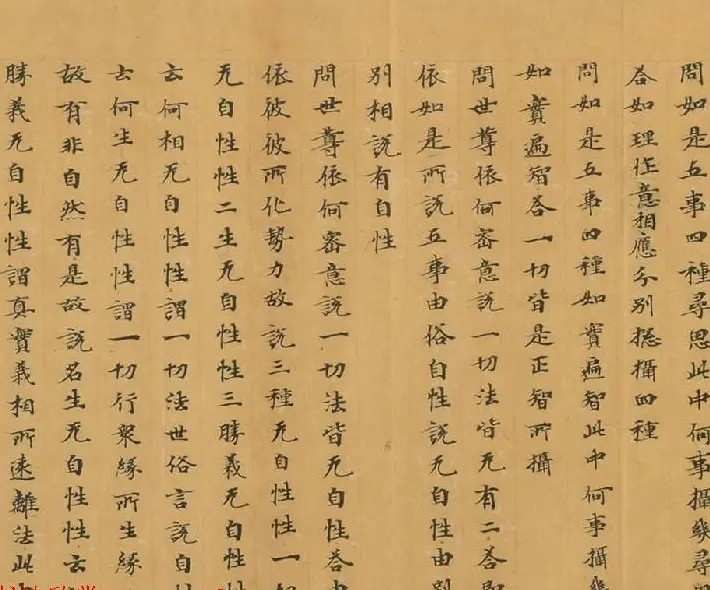 問如是五事四種尋思此中何事攝幾尋
荅如理作意相應分別揔攝四種
問如是五事四種如實遍智此中何事攝幾
如實遍智荅一切皆是正智所攝
問世尊依何審意說一切法皆无有二荅即
依如是所說五事由俗自性說无自性由別
別相說有自性
問世尊依何審意說一切法皆无自性荅由
依彼彼所化勢力故說三種无自性性一
无自性性二生无自性性三勝義无自性
云何相无自性性謂一切法世俗言說自
云何生无自性性謂一切行衆緣所生緣
故有非自然有是故說名生无自性性云
勝義无自性性謂真實義相所遠離法此